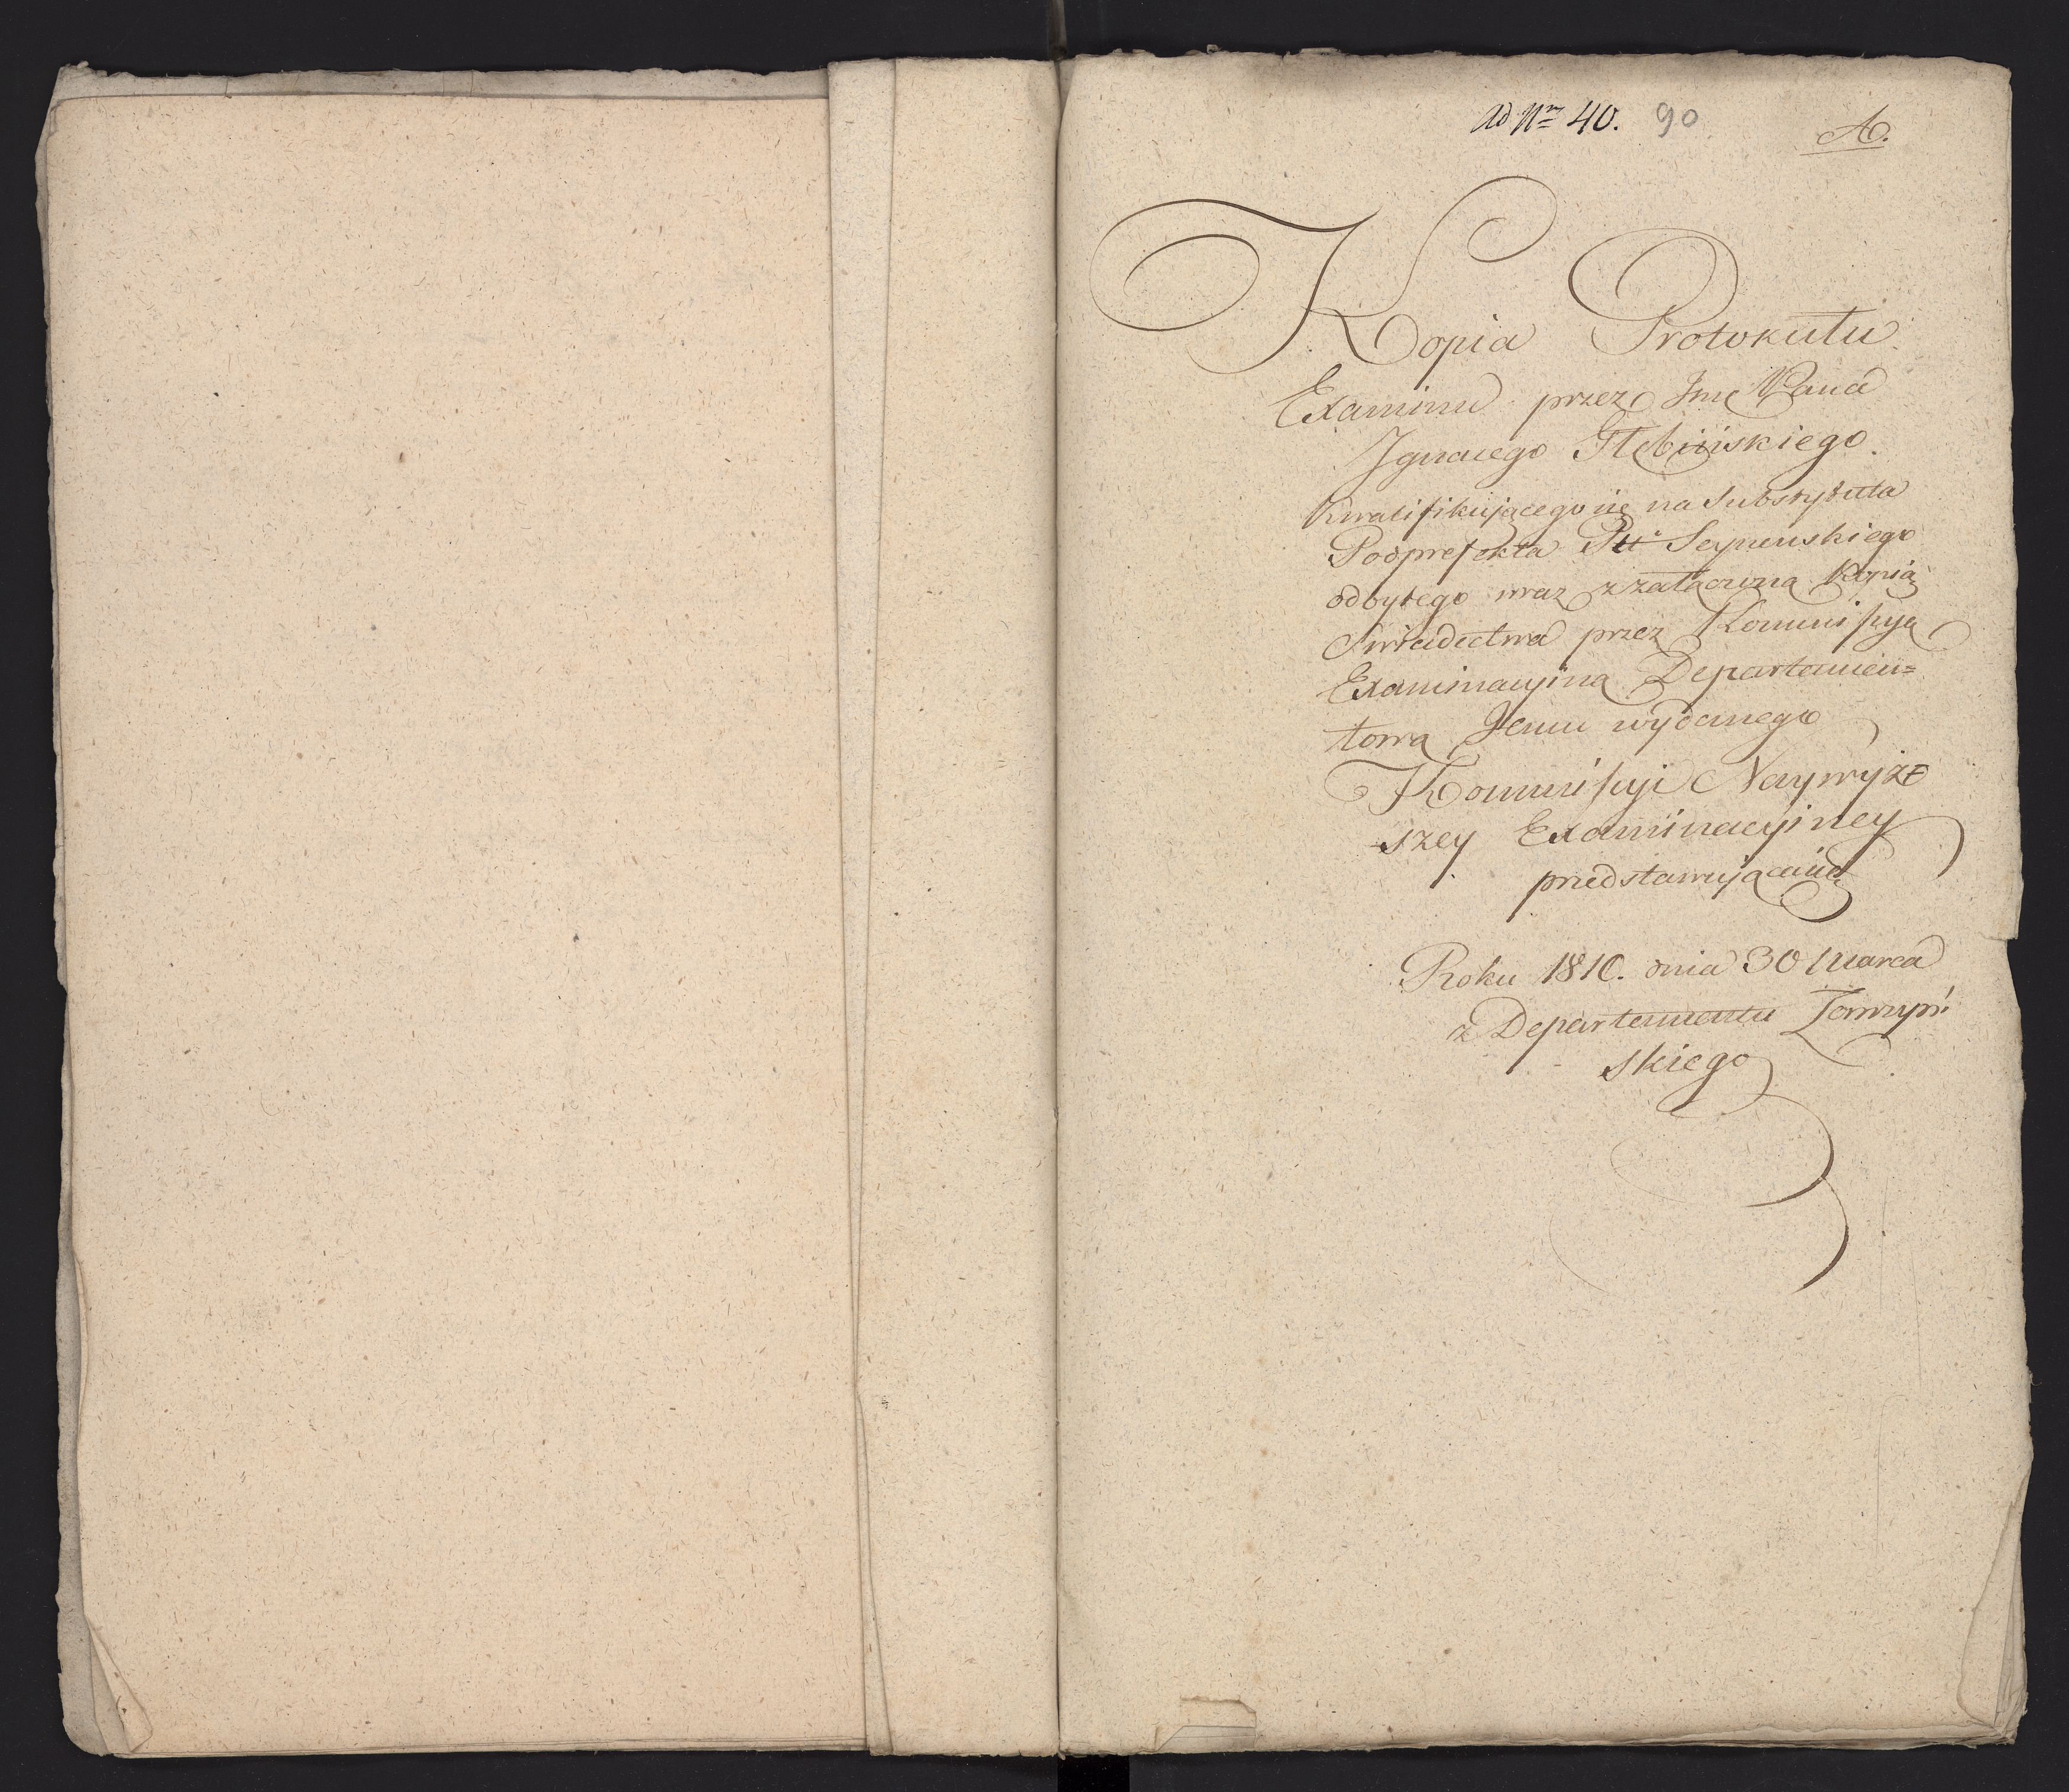 Ad Nr 40. 90
A.
Kopia Protokułu
Examinu przez Jmć Pana
Ignacego Głębińskiego
Kwalifikującego się na Substytuta
Podprefekta Ptu Seyneńskiego
odbytego wraz z załączoną Kopią
Swiadectwa przez Kommissyą
Examinacyiną Departamen=
tową Jemu wydanego
Kommissyi Naywyż
szey Examinacyiney
przedstawująca się
Roku 1810. dnia 30 Marca
z Departamentu Łomżyń
skiego